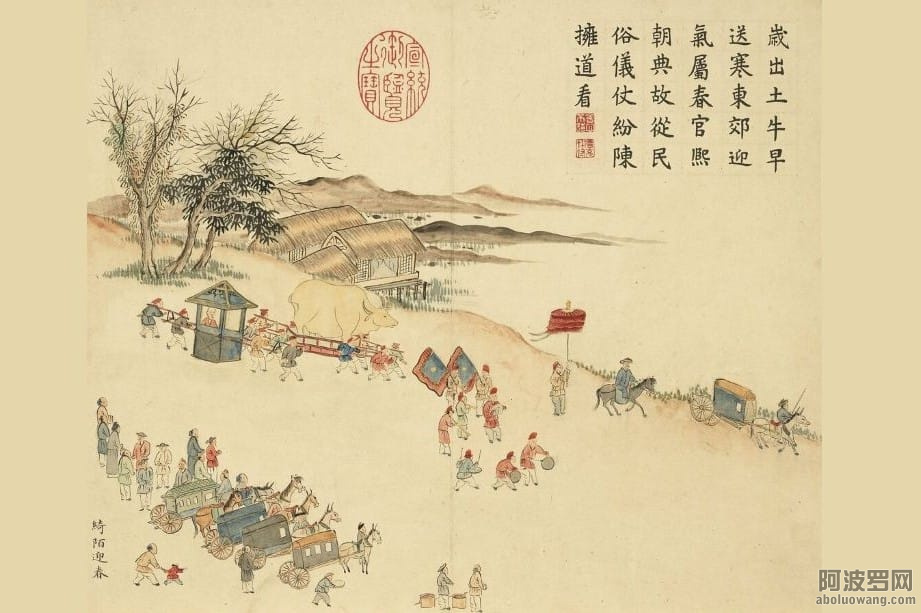 歲出土牛早
送寒東郊迎
氣屬春官熈
朝典故從民
俗儀仗紛陳
擁道看
宣統御覽之寶
綺陌迎春
阿波罗网
aboluowang.com